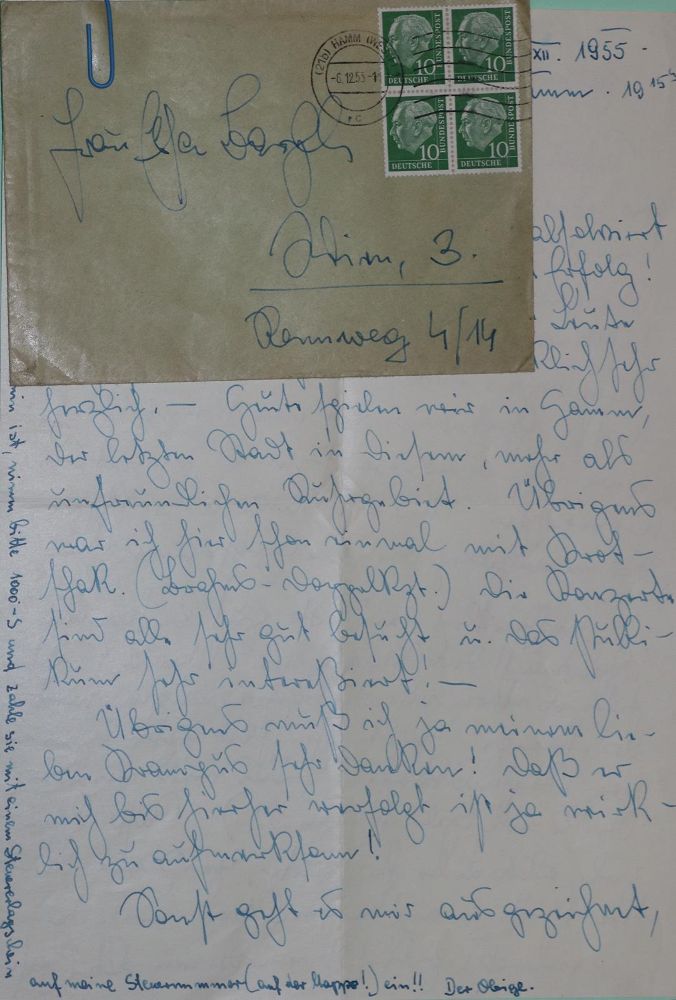 (21b) HAMM (WE
-6.12.55-1
rc
10
DEUTSCHE
BUNDESPOST
10
DEUTSCHE
BUNDESPOST
10
DEUTSCHE
BUNDESPOST
10
DEUTSCHE
BUNDESPOST
Frau
Wien, 3.
Rennweg 4/14
XII. 1955.
mm. 19 15
absolviert
Erfolg!
Leute
klich sehr
herzlich. — Heute spielen wir in Hamm,
der letzten Stadt in diesem, mehr als
unfreundlichen Ruhrgebiet. Übrigens
war ich hier schon einmal mit Krot-
schak. (Brahms-Doppelkzt.) Die Konzerte
sind alle sehr gut besucht u. das Publi-
kum sehr interessiert! —
Übrigens muß ich ja meinem lie-
ben sehr danken! Daß er
mich bis hierher verfolgt ist ja wirk-
lich zu aufmerksam!
Sonst geht es mir ausgezeichnet,
ist, nimm bitte 1000-S und zahle sie mit einem Steuererlagschein
auf meine Steuernummer (auf der Mappe!) ein!! Der Obige.